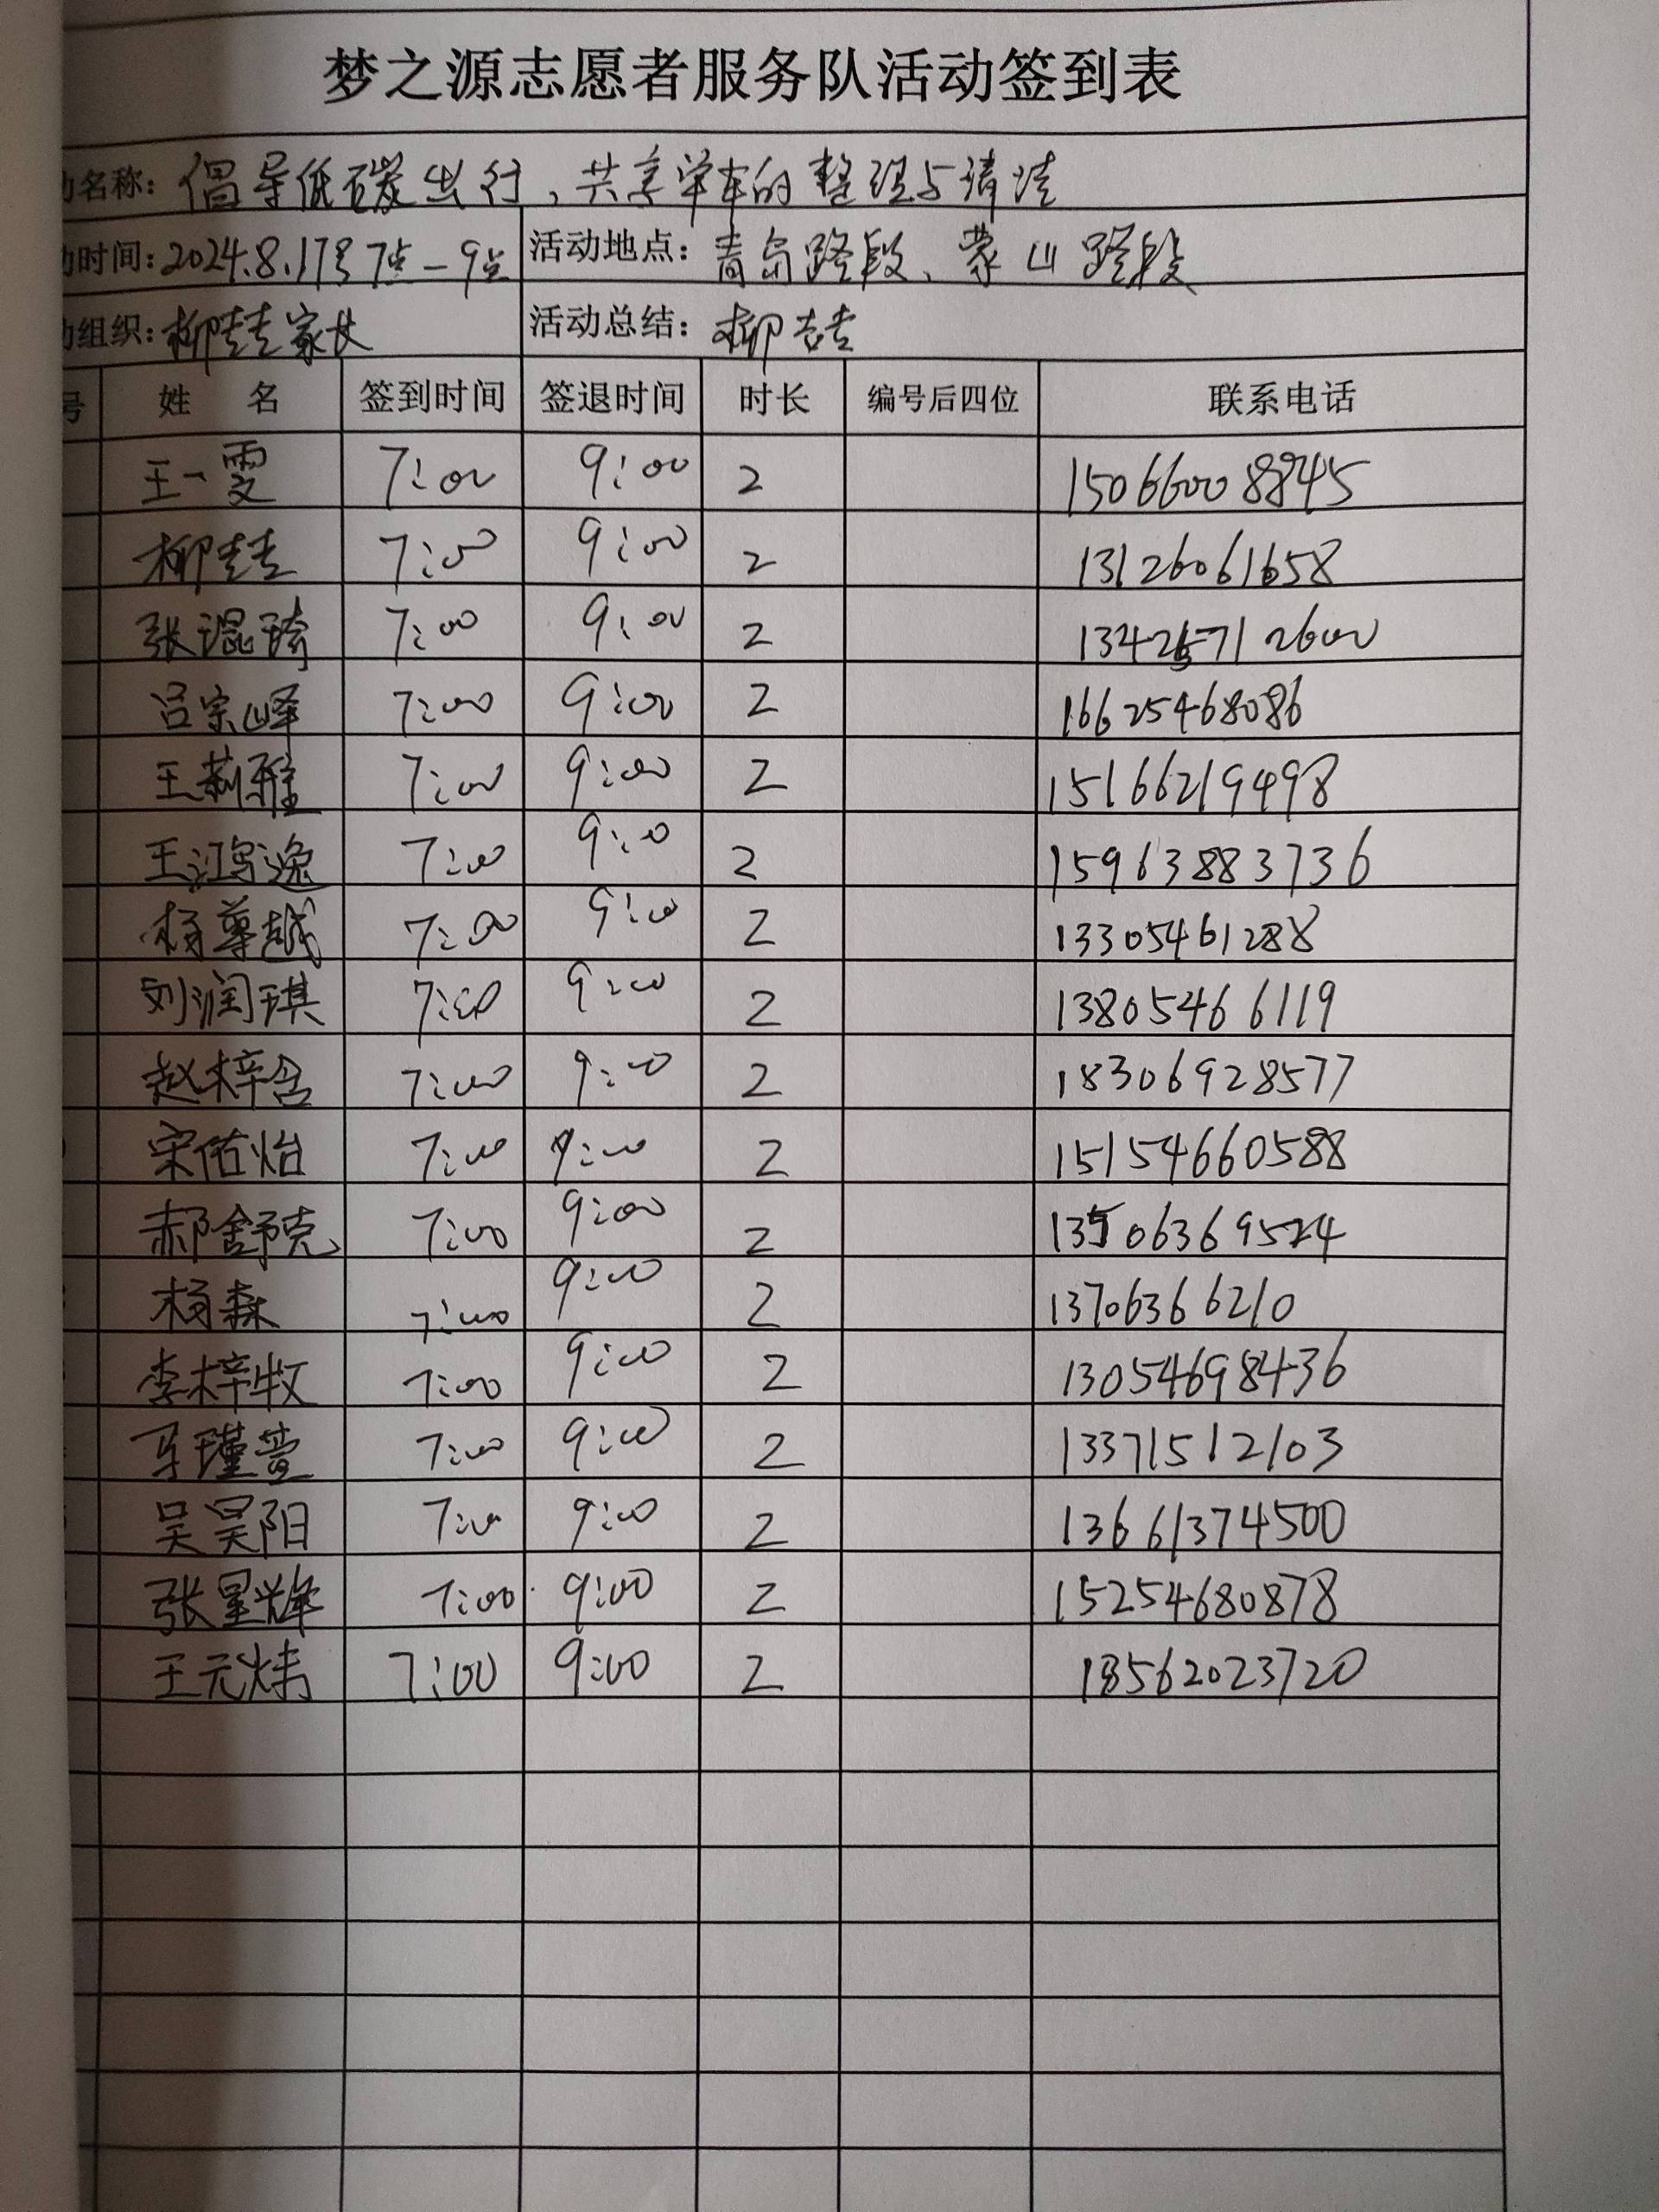 梦之源志愿者服务队活动签到表
动名称: 倡导低碳出行,共享单车的整理与清洁
动时间: 2024.8.17号7点-9点 活动地点: 青岛路段、蒙山路段
动组织: 柳喆喆家长 活动总结: 柳喆喆
号 姓 名 签到时间 签退时间 时长 编号后四位 联系电话
王一雯 7:00 9:00 2 15066008845
柳喆喆 7:00 9:00 2 13126061658
张琨琦 7:00 9:00 2
吕宗峰 7:00 9:00 2 16625468086
王莉雅 7:00 9:00 2 15166219498
王鸿逸 7:00 9:00 2 15963883736
杨尊越 7:00 9:00 2 13305461288
刘润琪 7:00 9:00 2 13805466119
赵梓含 7:00 9:00 2 18306928577
宋佑怡 7:00 9:00 2 15154660588
郝舒克 7:00 9:00 2 13506369524
杨森 7:00 9:00 2 13706366210
李梓牧 7:00 9:00 2 13054698436
马瑾萱 7:00 9:00 2 13371512103
吴昊阳 7:00 9:00 2 13661374500
张星烽 7:00 9:00 2 15254680878
王元炜 7:00 9:00 2 18562023720